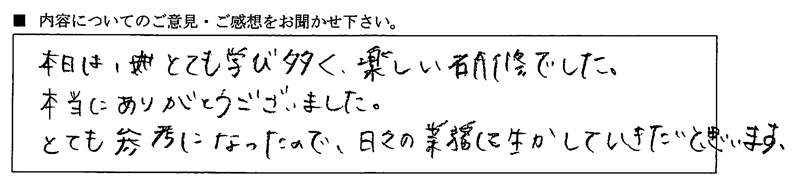 ■ 内容についてのご意見・ご感想をお聞かせ下さい。
本日は、とても学び多く、楽しい研修でした。
本当にありがとうございました。
とても参考になったので、日々の業務に生かしていきたいと思います。